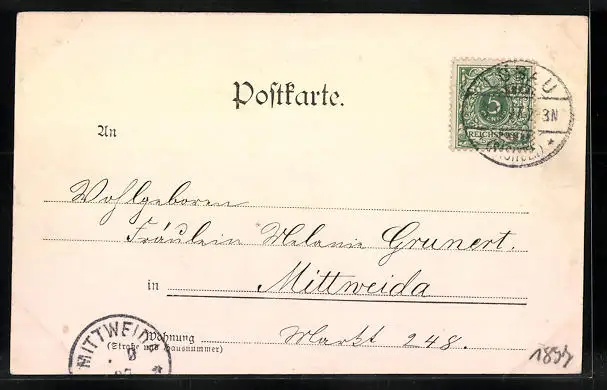 Postkarte.
5
REICHSPOST
3N
An
Wohlgeboren
Fräulein Melanie Grunert.
in Mittweida
Wohnung Markt 248.
(Straße und Hausnummer)
MITTWEIDA
1897